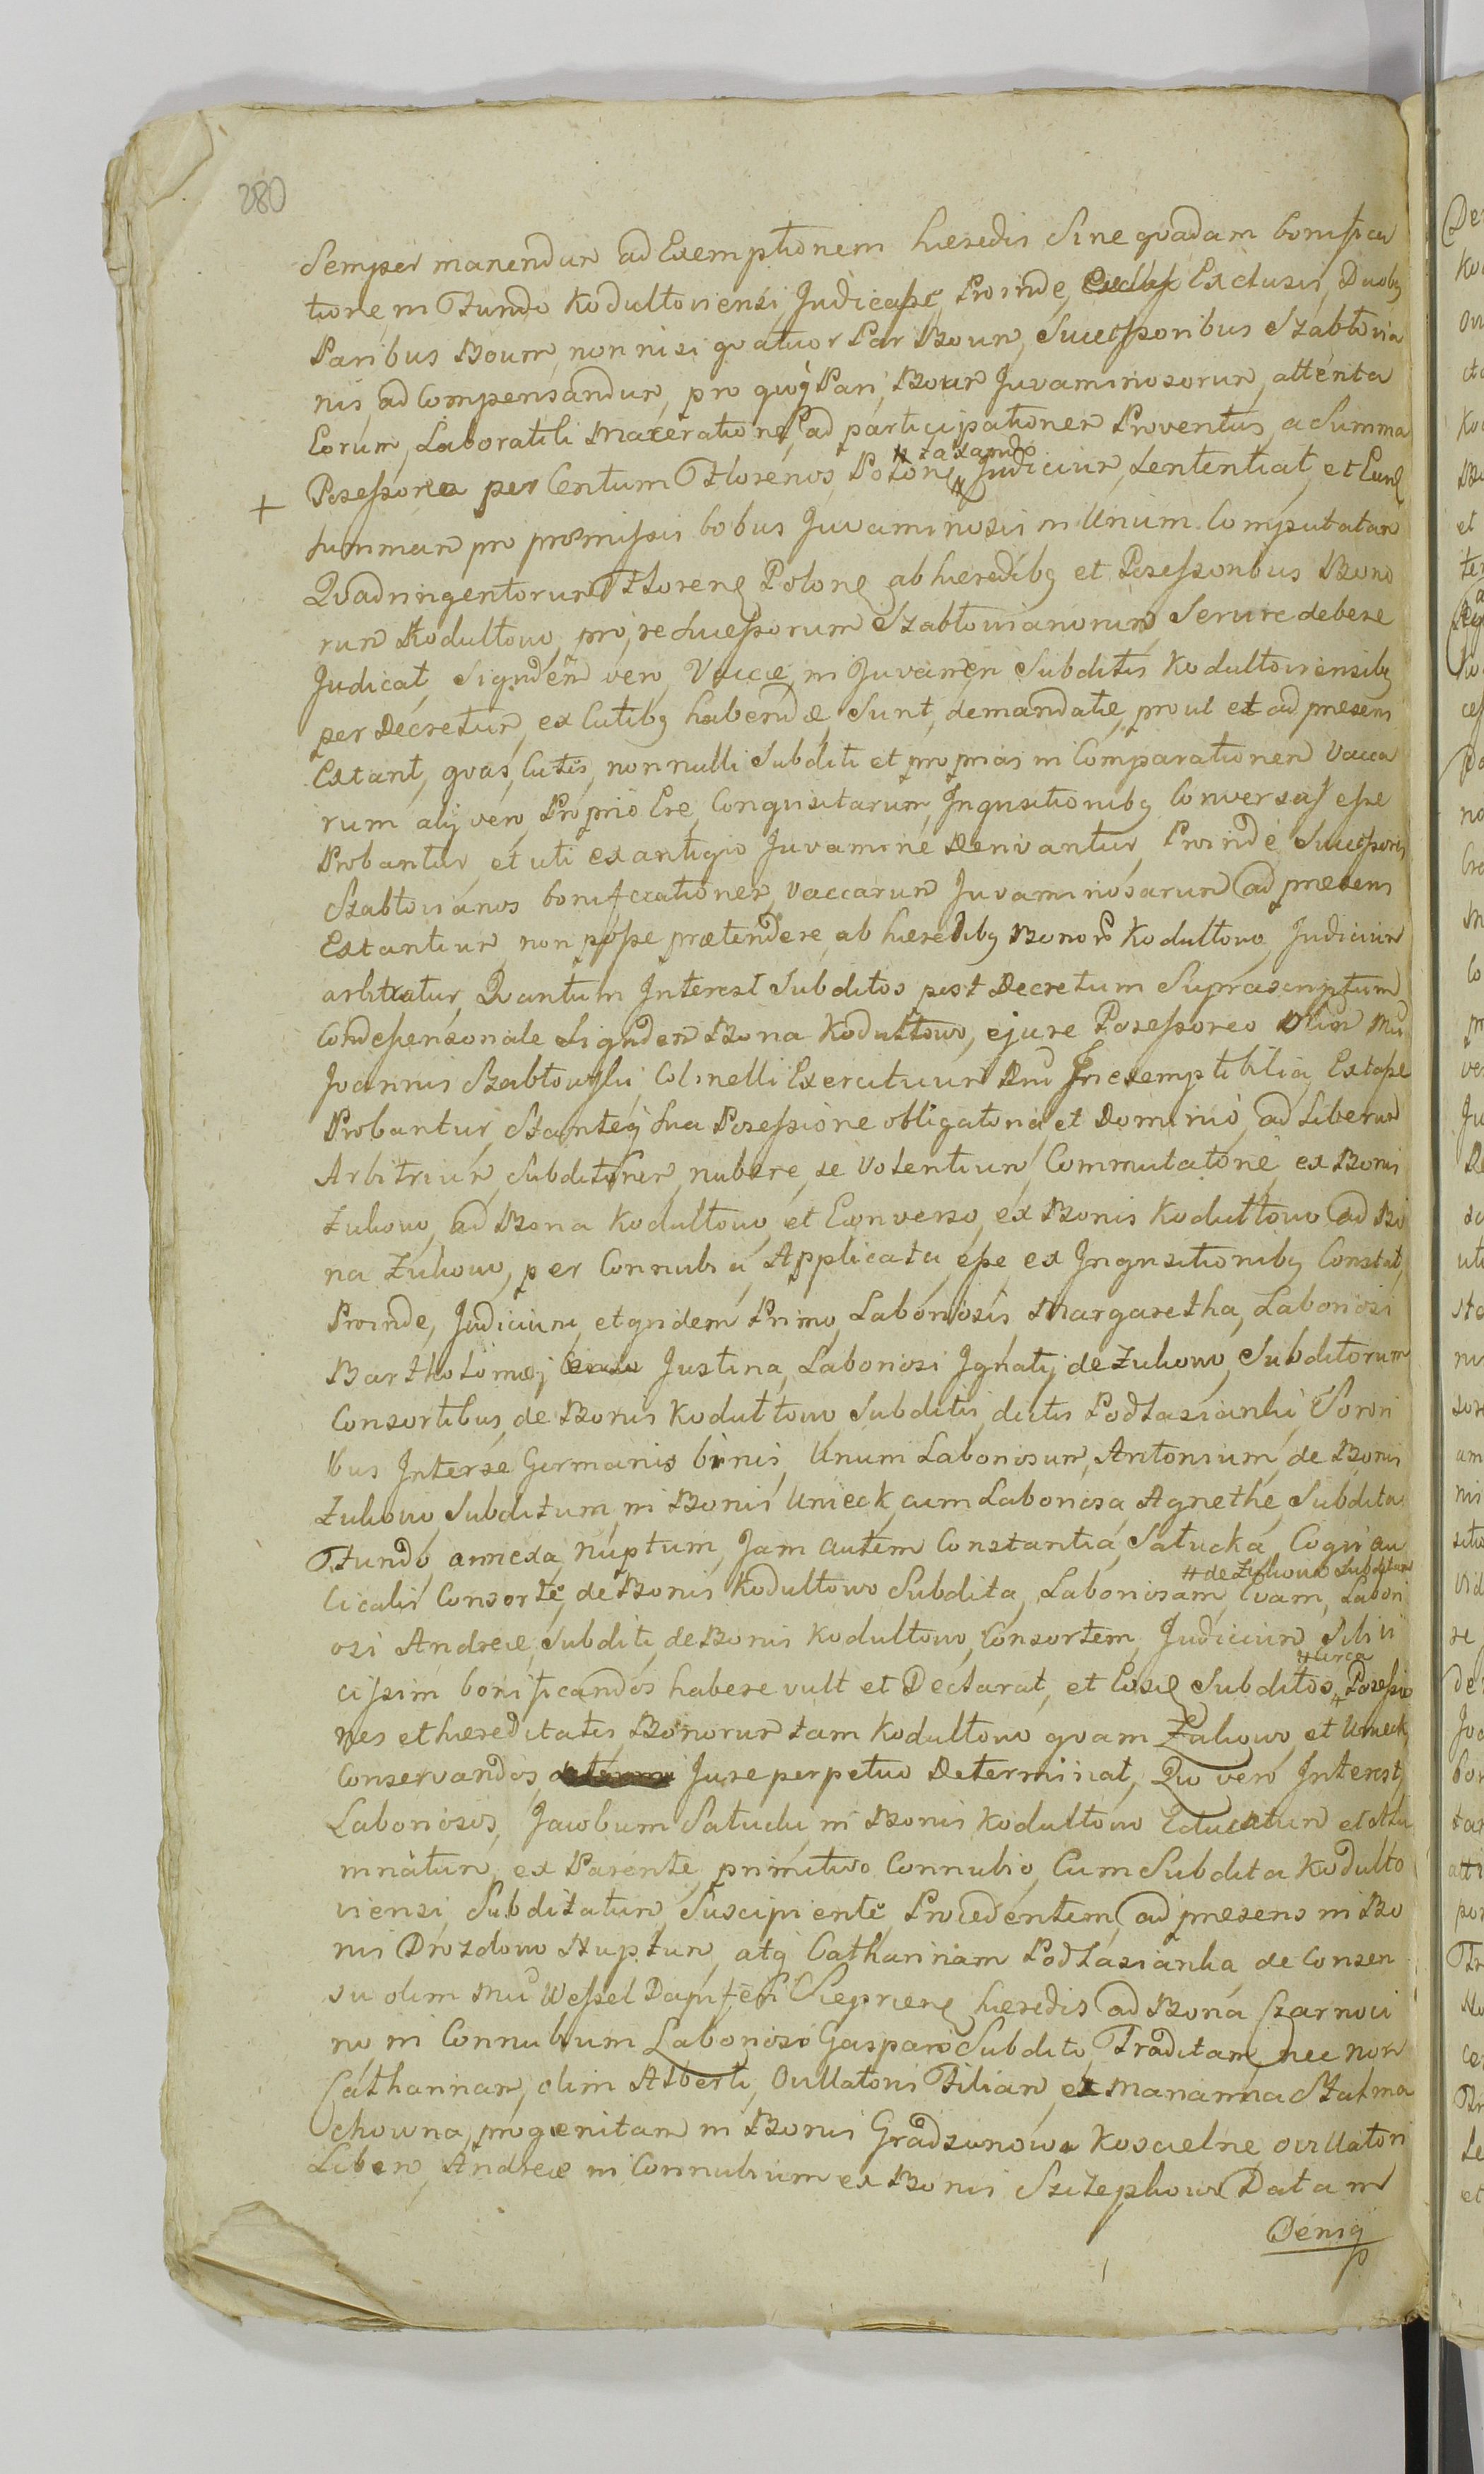 280
Semper manendum ad Exemptionem hæredis Sine quadam bonifica
tione in Fundo Kodułtoviensi Judicasse, Proinde, Exclusis, Duobq
Paribus Boum, non nisi quatuor Par Boum, Successoribus Szabłovia
nis, ad Compensandum, pro quoq Pari, Boum Juvaminosorum, attenta
Eorum, Laboratili Maceratione, ad participationem Proventus, a Summa
# taxando
+ Possessorea per Centum Florenos, Polon # Judicium, Sententiat, et Eand
Summam pro præmissis bobus Juvaminosis in Unum Computatam
Quadringentorum Floren Polon ab hæredibq et Possessoribus Bono
rum Kodułtowo, pro, re Successorum Szabłovianorum Servire debere
Judicat, Siquidem vero, Vaccæ, in Juvamen Subditis Kodułtoviensibq
per Decretum, ex Cutibq habendæ, Sunt, demandatæ, prout et ad præsens
Extant, quas, Cutis, nonnulli Subditi et proprias in Comparationem Vacca
rum alij vero, Proprio Ere, Conquisitarum, Inquisitionibq Conversas esse
Probantur, et uti ex antiquo Juvamine Derivantur, Proinde Successores
Szabłovianos bonificationem, Vaccarum Juvaminosarum ad præsens
Extantium, non posse prætendere, ab hæredibq Bonor Kodułtowo, Judicium
arbitratur, Quantum Interest Subditos post Decretum Suprascriptum
Condessensionale Siquidem Bona Kodułtowo, e jure Possessoreo Olim
Joannis Szabłowski Colonelli Exercituum Inexemptibilia Extasse
Probantur, Stanteq Sua Possessione obligatoria, et Dominio, ad Liberum
Arbitrium, Subditorum, nubere, se Volentium Commutatione, ex Bonis
Żukowo, ad Bona Kodułtowo, et Econverso, ex Bonis Kodułtowo ad Bo
na Żukowo, per Connubia, Applicata, esse, ex Inquisitionibq Constat,
Proinde, Judicium, et quidem Primo, Laboriosis Margaretha, Laboriosi
Bartholomæj Justina, Laboriosi Ignatij de Żukowo, Subditorum
Consortibus, de Bonis Kodułtowo Subditis, dictis Podłasianki Soror
ibus Interse Germanis binis, Unum Laboriosum, Antonium, de Bonis
Żukowo Subditum, in Bonis Unieck, cum Laboriosa, Agnethe, Subdita
Fundo, annexa, Nuptum, Jam autem Constantia, Sałucka, Coqui au
# de Żukowo Subditam
licalis Consorte, de Bonis Kodułtowo Subdita, Laboriosam Evam, Labori
osi Andreæ, Subditi, de Bonis Kodułtowo, Consortem, Judicium Sibi vi
# circa
cissim bonificandos habere vult et Declarat, et Eosd Subditos # Possessio
nes et hæreditates Bonorum tam Kodułtowo quam Żukowo, et Unieck,
Conservandos, Jure perpetuo Determinat, Quo vero Interest
Laboriosos, Jacobum Sałucki, in Bonis Kodułtowo Educatum et Alu
mnatum, ex Parente, primitivo Connubio, Cum Subdita Kodułto
viensi, Subditatum, Suscipiente, Procedentem, ad præsens in Bo
nis Drozdowo Nuptum, atq Catharinam Podłasianka de Consen
su olim Wessel Dapiferi hæredis ad Bona Czarnoci
no in Connubium Laboriosi Gaspari Subdito, Traditam, nec non
Catharinam, olim Alberti, Ovillatoris Filiam, ex Marianna Stalma
chowna, progenitam in Bonis Gradzanowo Koscielne, Ovillatori
Libero, Andreæ in Connubium ex Bonis Datam
Deniq